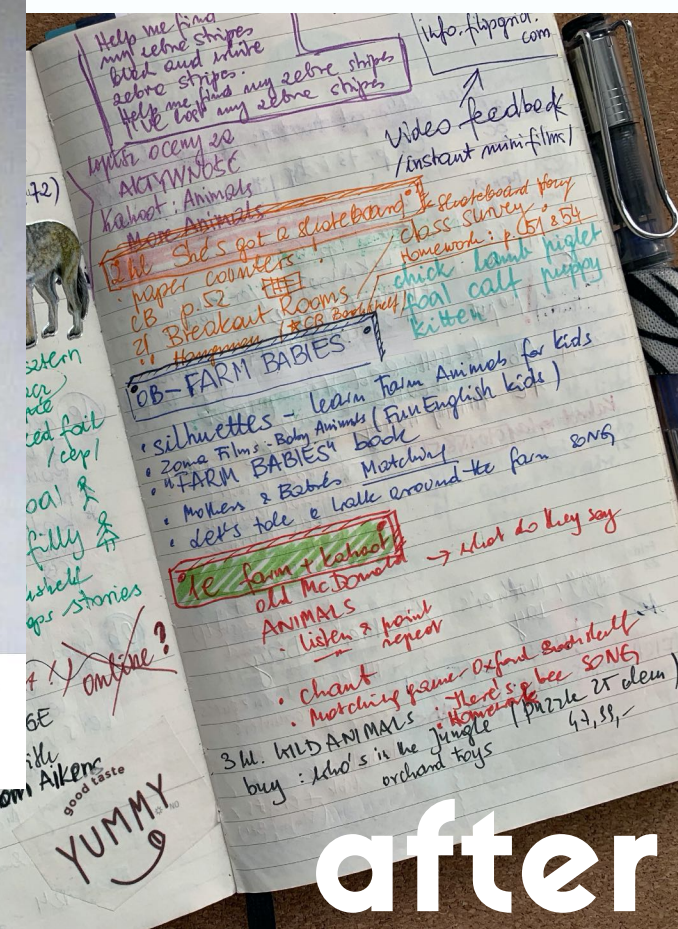 Help me find
my zebra stripes
black and white
zebra stripes.
Help me find my zebra stripes
I've lost my zebra stripes
info.flipgrid.
com
video feedback
/instant minifilms/
wpisz oceny za
AKTYWNOŚĆ
Kahoot: Animals
More Animals
She's got a skateboard
skateboard
class survey
Homework: p. 51 & 54
paper counters
CB p.52
Breakout Rooms
Hangman
chick lamb piglet
foal calf puppy
kitten
OB-FARM BABIES
silhuettes - learn Farm Animals for kids
Zoma Films - Baby Animals (Fun English kids)
"FARM BABIES" book
Mothers & Babies Matching
Let's take a walk around the farm SONG
1e farm + kahoot
old McDonald → what do they say
ANIMALS
listen & point
repeat
chant
Matching game Oxford
There's a bee SONG
Homework
3 kl. WILD ANIMALS
buy: who's in the jungle (puzzle 25 elem)
orchard toys
47,99,-
72)
oal
filly
/cep/
stories
online?
Aiken
good taste
YUMMY
after